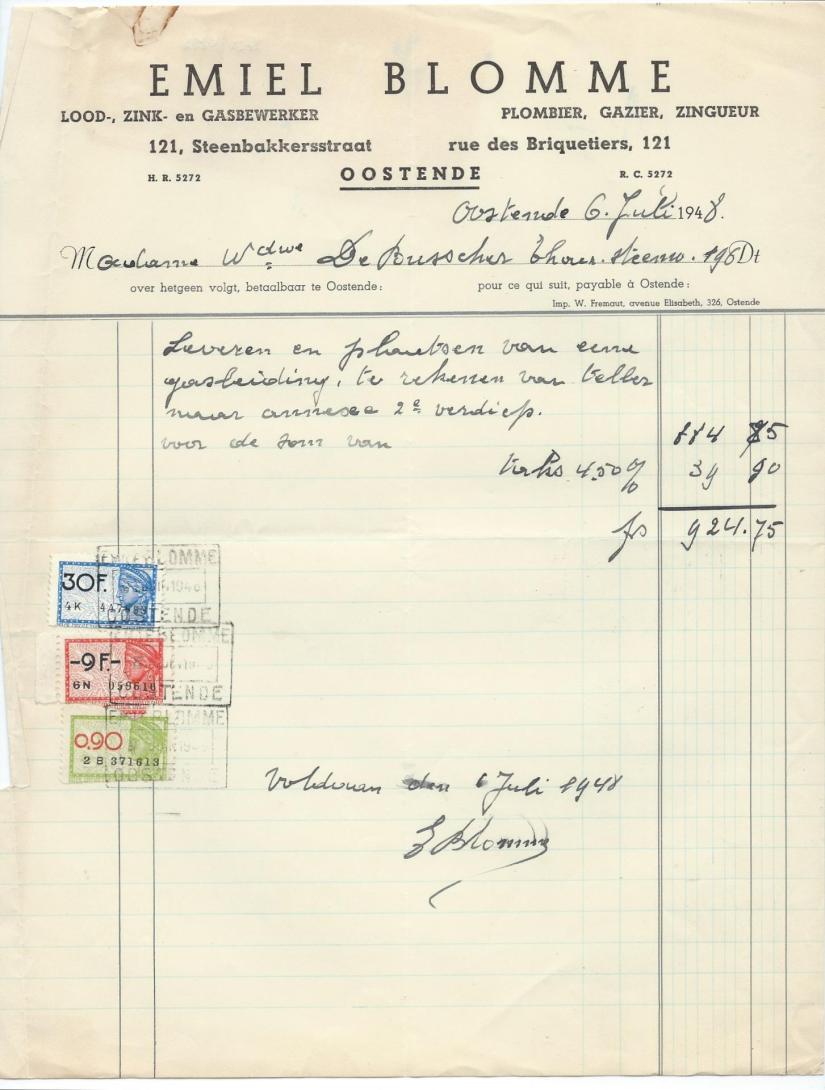 EMIEL BLOMME
LOOD-, ZINK- en GASBEWERKER PLOMBIER, GAZIER, ZINGUEUR
121, Steenbakkersstraat rue des Briquetiers, 121
H. R. 5272 OOSTENDE R. C. 5272
Oostende 6. Juli 1948.
Madame Wdwe De Busscher Thour. steenw. 198
over hetgeen volgt, betaalbaar te Oostende: pour ce qui suit, payable à Ostende:
Imp. W. Fremaut, avenue Elisabeth, 326, Ostende
Leveren en plaatsen van eene
gasleiding, te rekenen van teller
naar annexe 2e verdiep.
voor de som van 884 85
taks 4.50% 39 90
frs 924.75
EMIEL BLOMME
30F.
4K
OOSTENDE
EMIEL BLOMME
-9F.-
6N 059610
OOSTENDE
EMIEL BLOMME
0.90
2 B 371613
OOSTENDE
Voldaan den 6 Juli 1948
E Blomme